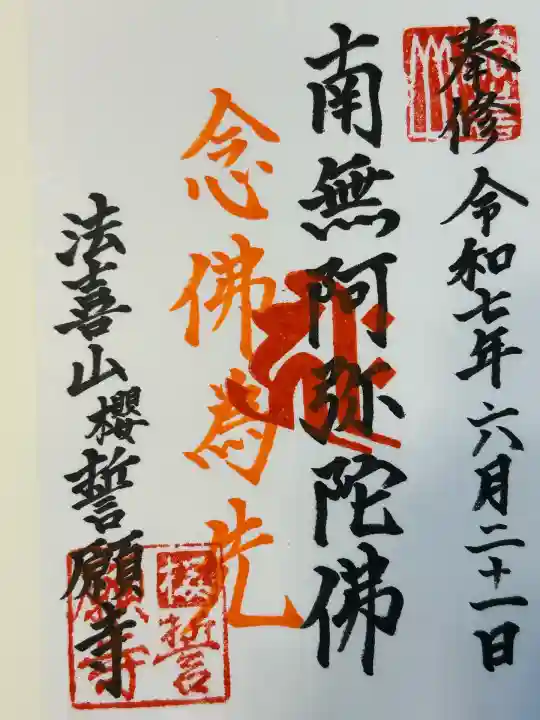 奉修 令和七年六月二十一日
南無阿弥陀佛
念佛為先
法喜山櫻誓願寺
櫻誓願寺